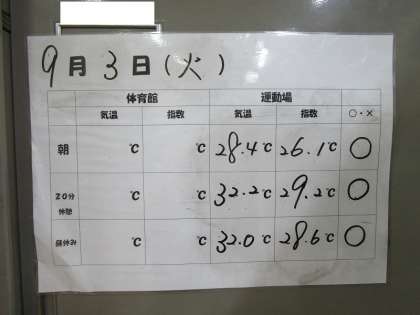 9月3日(火)
体育館 運動場
気温 指数 気温 指数 ○・×
朝 ℃ ℃ 28.4℃ 26.1℃ ○
20分休憩 ℃ ℃ 32.2℃ 29.2℃ ○
昼休み ℃ ℃ 32.0℃ 28.6℃ ○